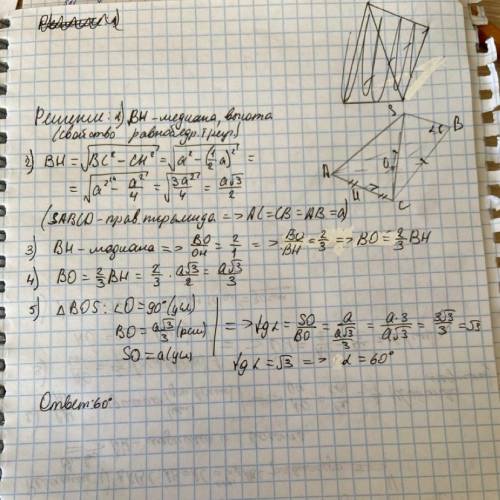 Решение: 1) BH - медиана, высота
(свойство равнобедр. треуг.)
2) BH = √BC² - CH² = √a² - (1/2 a)² =
= √a² - a²/4 = √3a²/4 = a√3/2
(SABCD - прав. пирамида => AC = CB = AB = a)
3) BH - медиана => BO/OH = 2/1 => BO/BH = 2/3 => BO = 2/3 BH
4) BO = 2/3 BH = 2/3 · a√3/2 = a√3/3
5) △BOS: ∠O = 90° (усл)
BO = a√3/3 (реш)
SO = a (усл)
=> tg α = SO/BO = a/(a√3/3) = a·3/a√3 = 3√3/3 = √3
tg α = √3 => α = 60°
Ответ: 60°
S
B
α
A
O
H
C